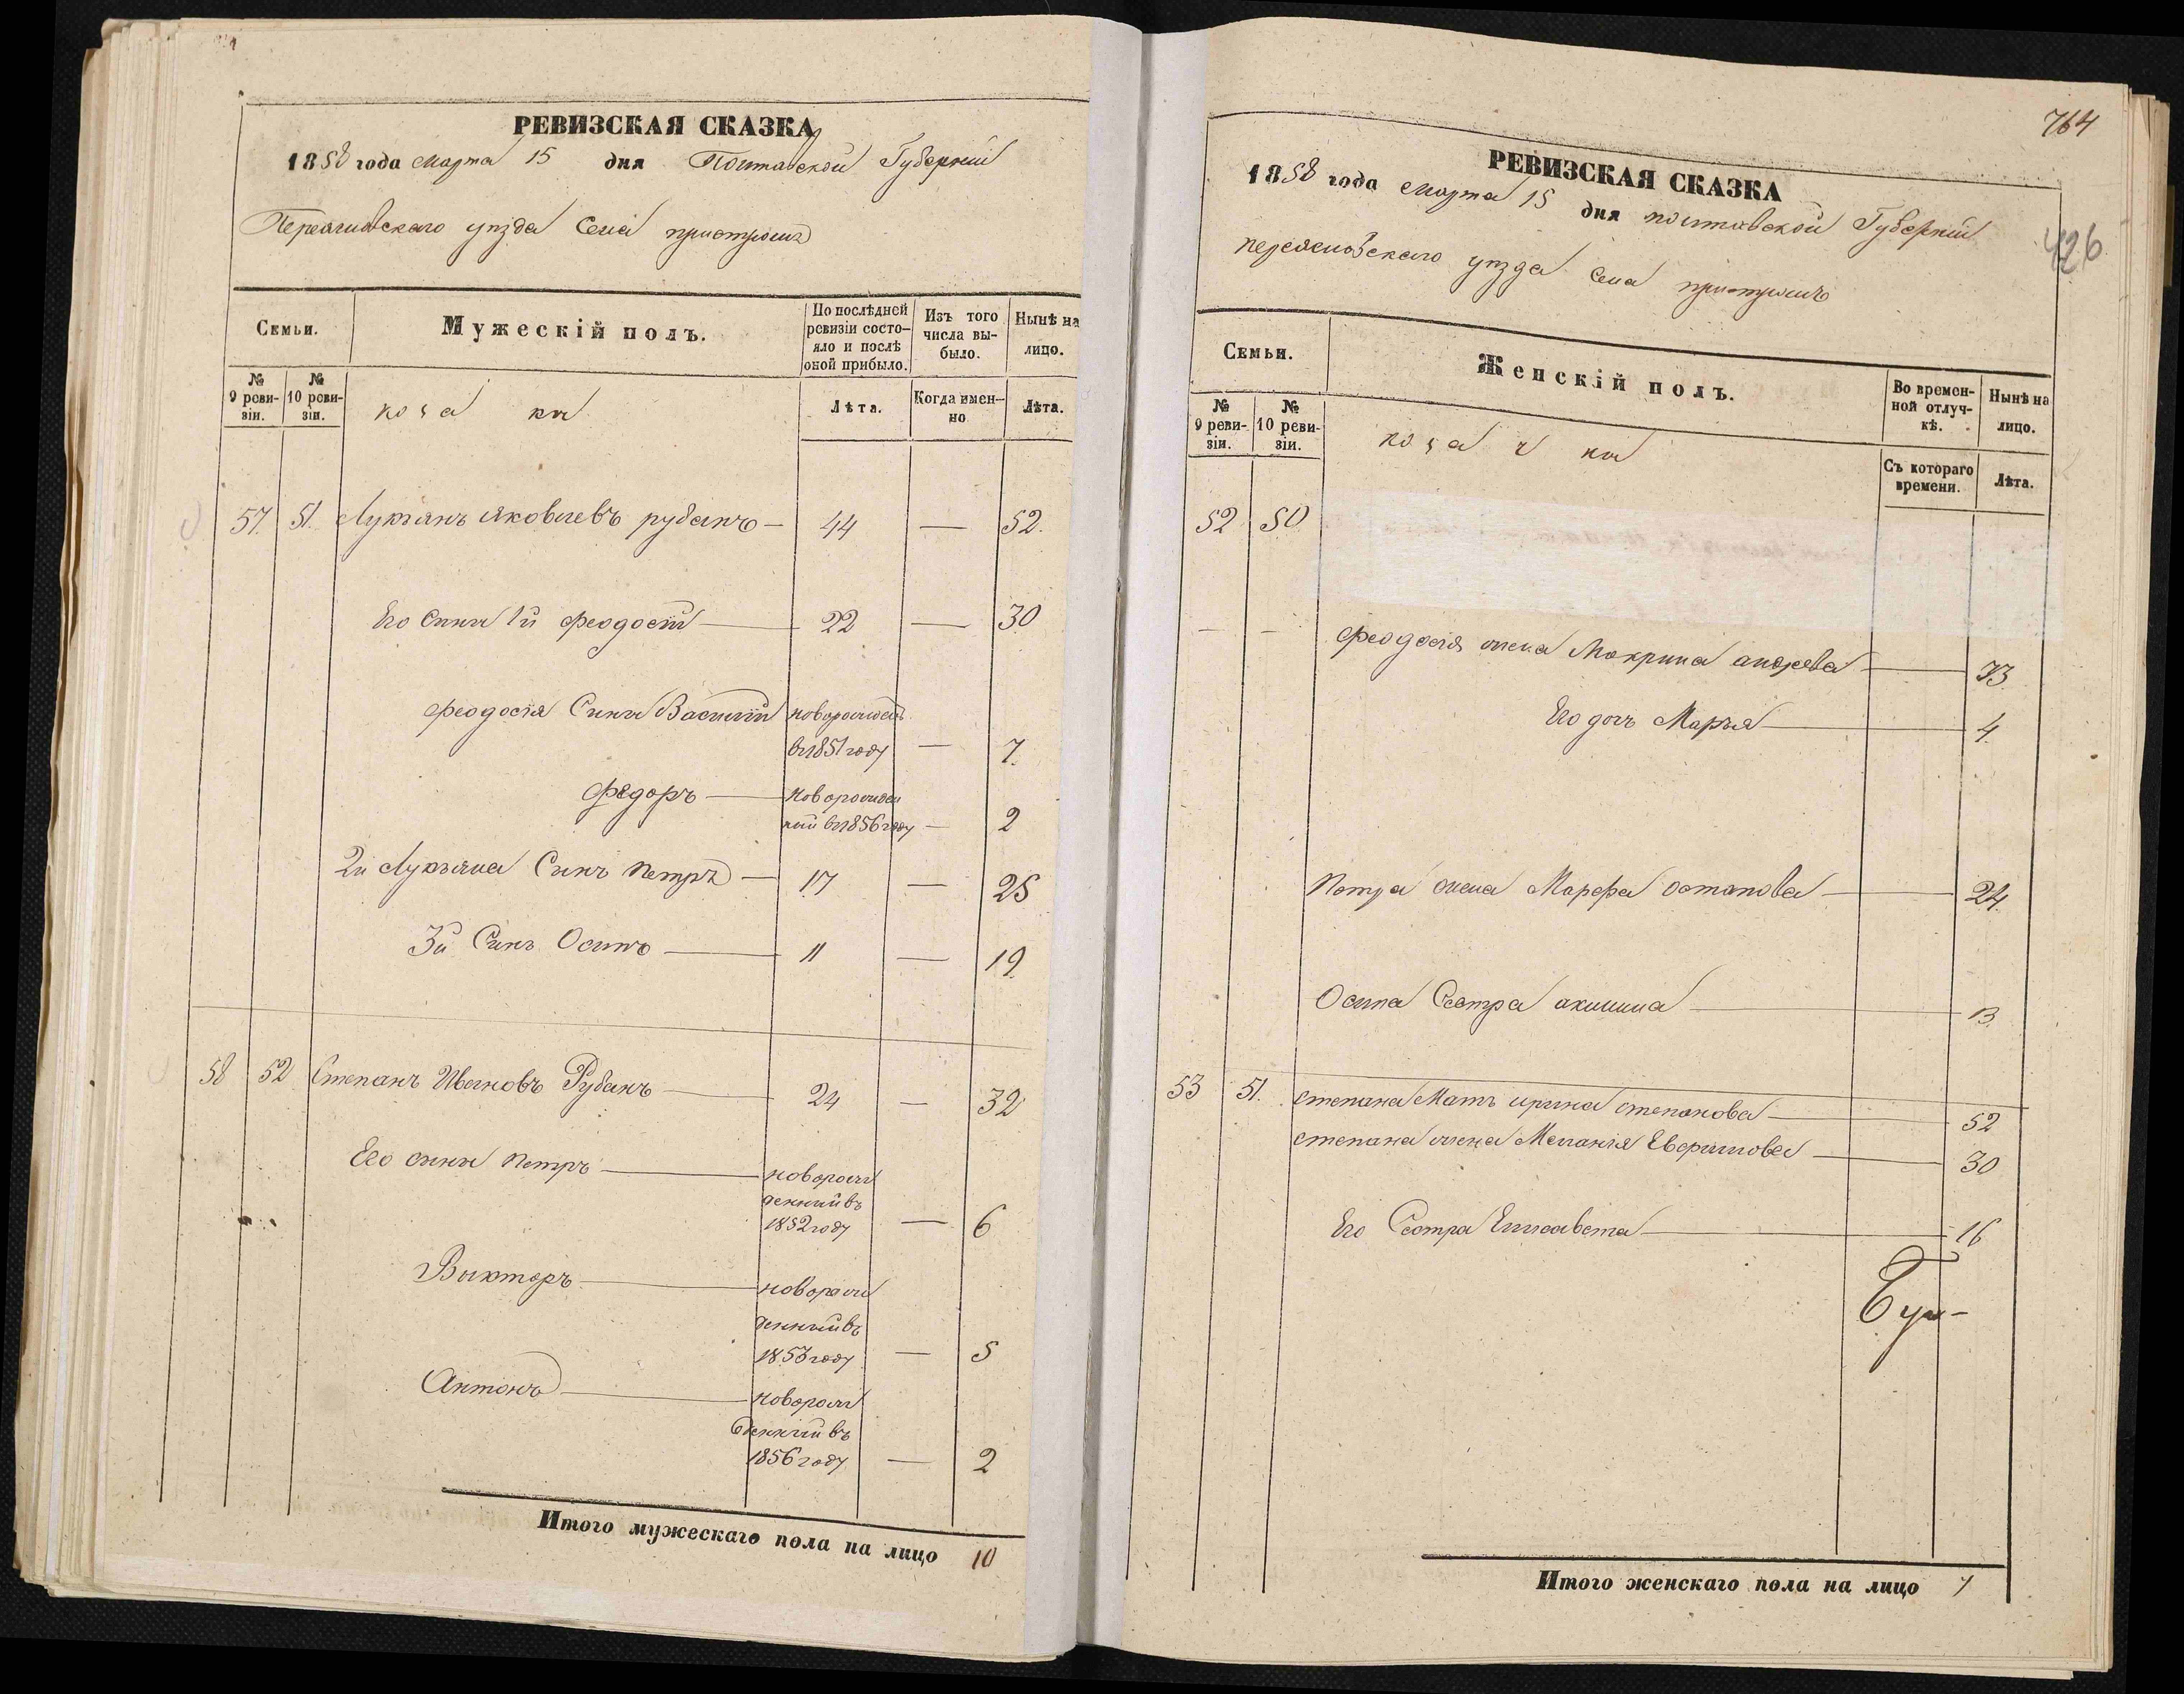 РЕВИЗСКАЯ СКАЗКА
1858 года Марта 15 дня Полтавской Губерніи
Переяславскаго уѣзда Села пристромъ
Семьи.
Мужескій полъ.
По послѣдней ревизіи состо-
яло и послѣ
оной прибыло.
Изъ того
числа вы-
было.
Нынѣ на
лицо.
№
9 реви-
зіи.
№
10 реви-
зіи.
коза ки
Лѣта.
Когда имен-
но
Лѣта.
57. 51. Лукъянъ яковлевъ рубанъ — 44 — 52.
Его Сыны 1й феодосій — 22 — 30
феодосія Сыны Василій новорожден
въ 1851 году — 7.
федоръ — новорожден
ный въ 1856 году — 2
2й Лукъяна Сынъ Петръ — 17 — 25
3й Сынъ Осипъ — 11 — 19.
58 52 Степанъ Ивановъ Рубанъ — 24 — 32
Его сыны Петръ — новорож
денный въ
1852 году — 6
Викторъ — новорож
денный въ
1853 году — 5
Антонъ — новорож
денный въ
1856 году — 2
Итого мужескаго пола на лицо 10
764
426
РЕВИЗСКАЯ СКАЗКА
1858 года Марта 15 дня полтавской Губерніи
переяславскаго уѣзда Села пристромъ
Семьи.
Женскій полъ.
Во времен-
ной отлуч-
кѣ.
Нынѣ на
лицо.
№
9 реви-
зіи.
№
10 реви-
зіи.
коза ч ки
Съ котораго
времени.
Лѣта.
52 50
— — феодосія жена Мокрина андрева — 33
Его дочь Марья — 4.
Петра жена Марфа остапова — 24.
Осипа Сестра акилина — 13.
53 51. степана Мать ирина степанова — 52
степана жена Меланія Евфимова — 30
Его Сестра Елисавета — 16
Итого женскаго пола на лицо 7